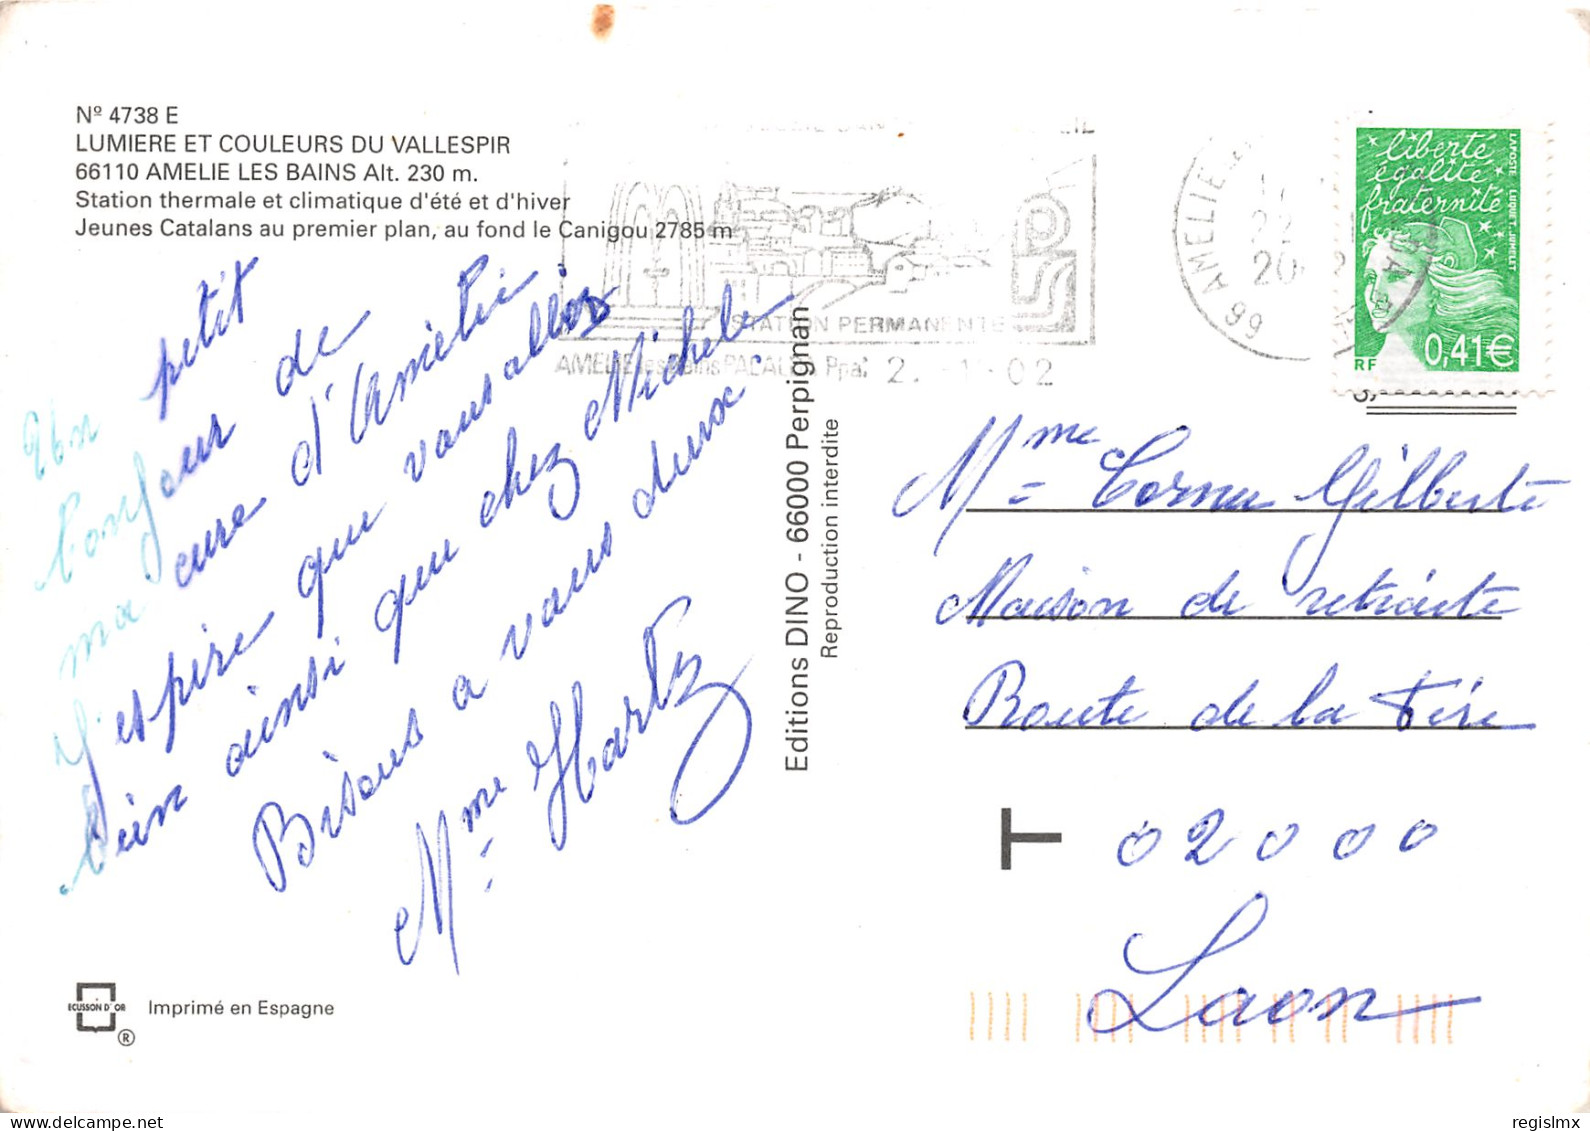 Nº 4738 E
LUMIERE ET COULEURS DU VALLESPIR
66110 AMELIE LES BAINS Alt. 230 m.
Station thermale et climatique d'été et d'hiver
Jeunes Catalans au premier plan, au fond le Canigou 2785 m
Un petit
bonjour de
ma cure d'Amélie
J'espère que vous allez
bien ainsi que chez Michele
Bisous a vous deux
Mme Hartz
ECUSSON D'OR
®
Imprimé en Espagne
Editions DINO - 66000 Perpignan
Reproduction interdite
STATION PERMANENTE
AMELIE les Bains PALALDA Ppal 2. -1-02
66 AMELIE
22
20
liberté
égalité
fraternité
LAPOSTE LUQUET, JUMELET
RF
0,41€
Mme Cornu Gilberte
Maison de retraite
Route de la Fère
T
02000
Laon
regislmx